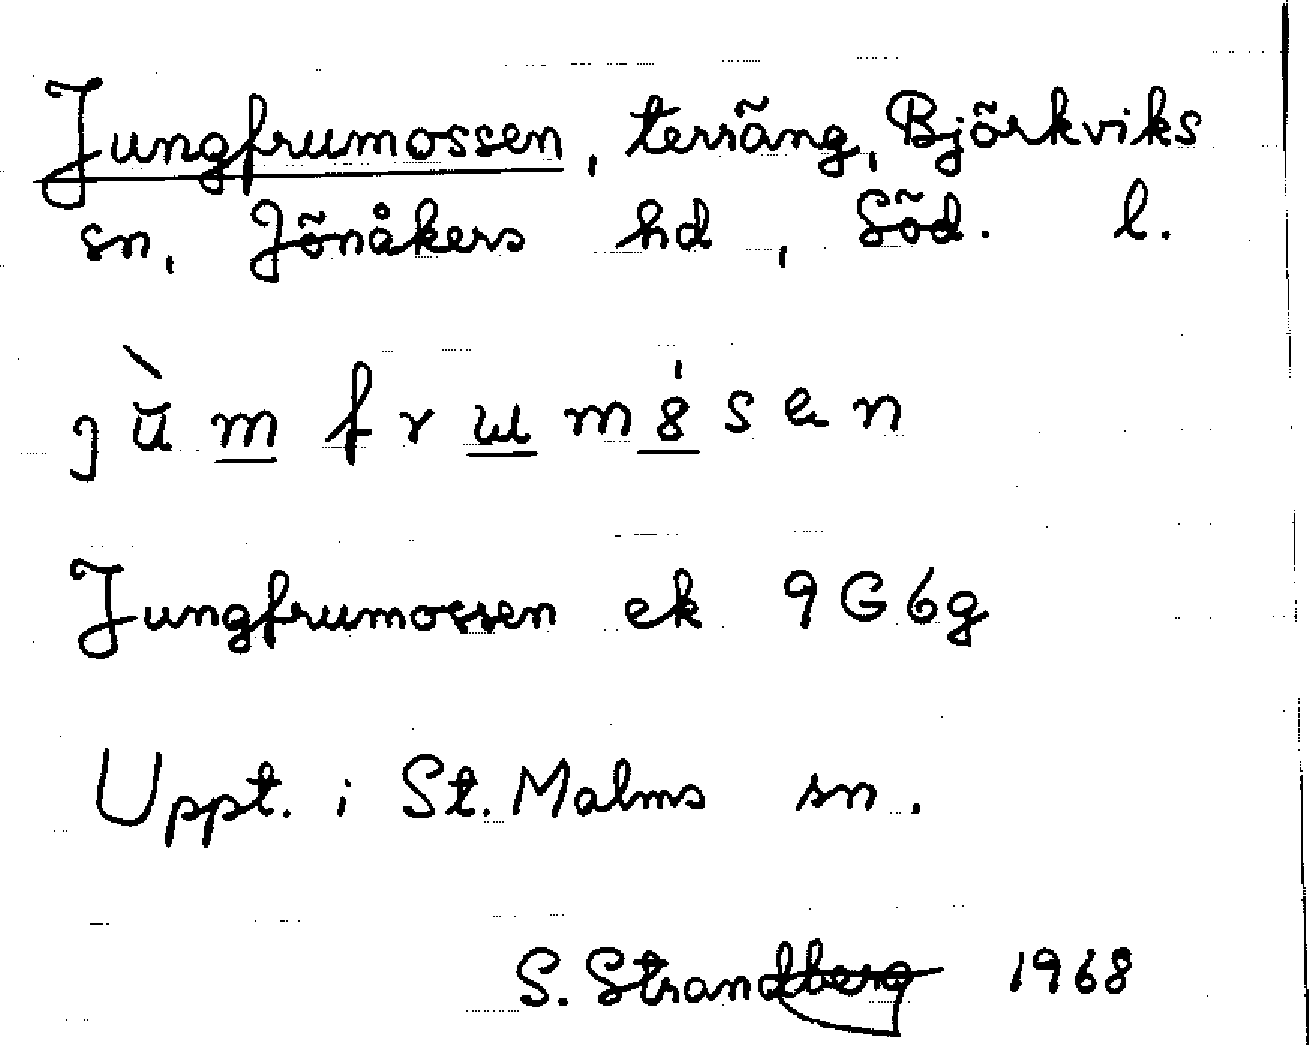 Jungfrumossen, terräng, Björkviks
sn, Jönåkers hd, Söd. l.
Jungfrumossen ek 9G6g
Uppt. i St. Malms sn.
S. Strandberg 1968